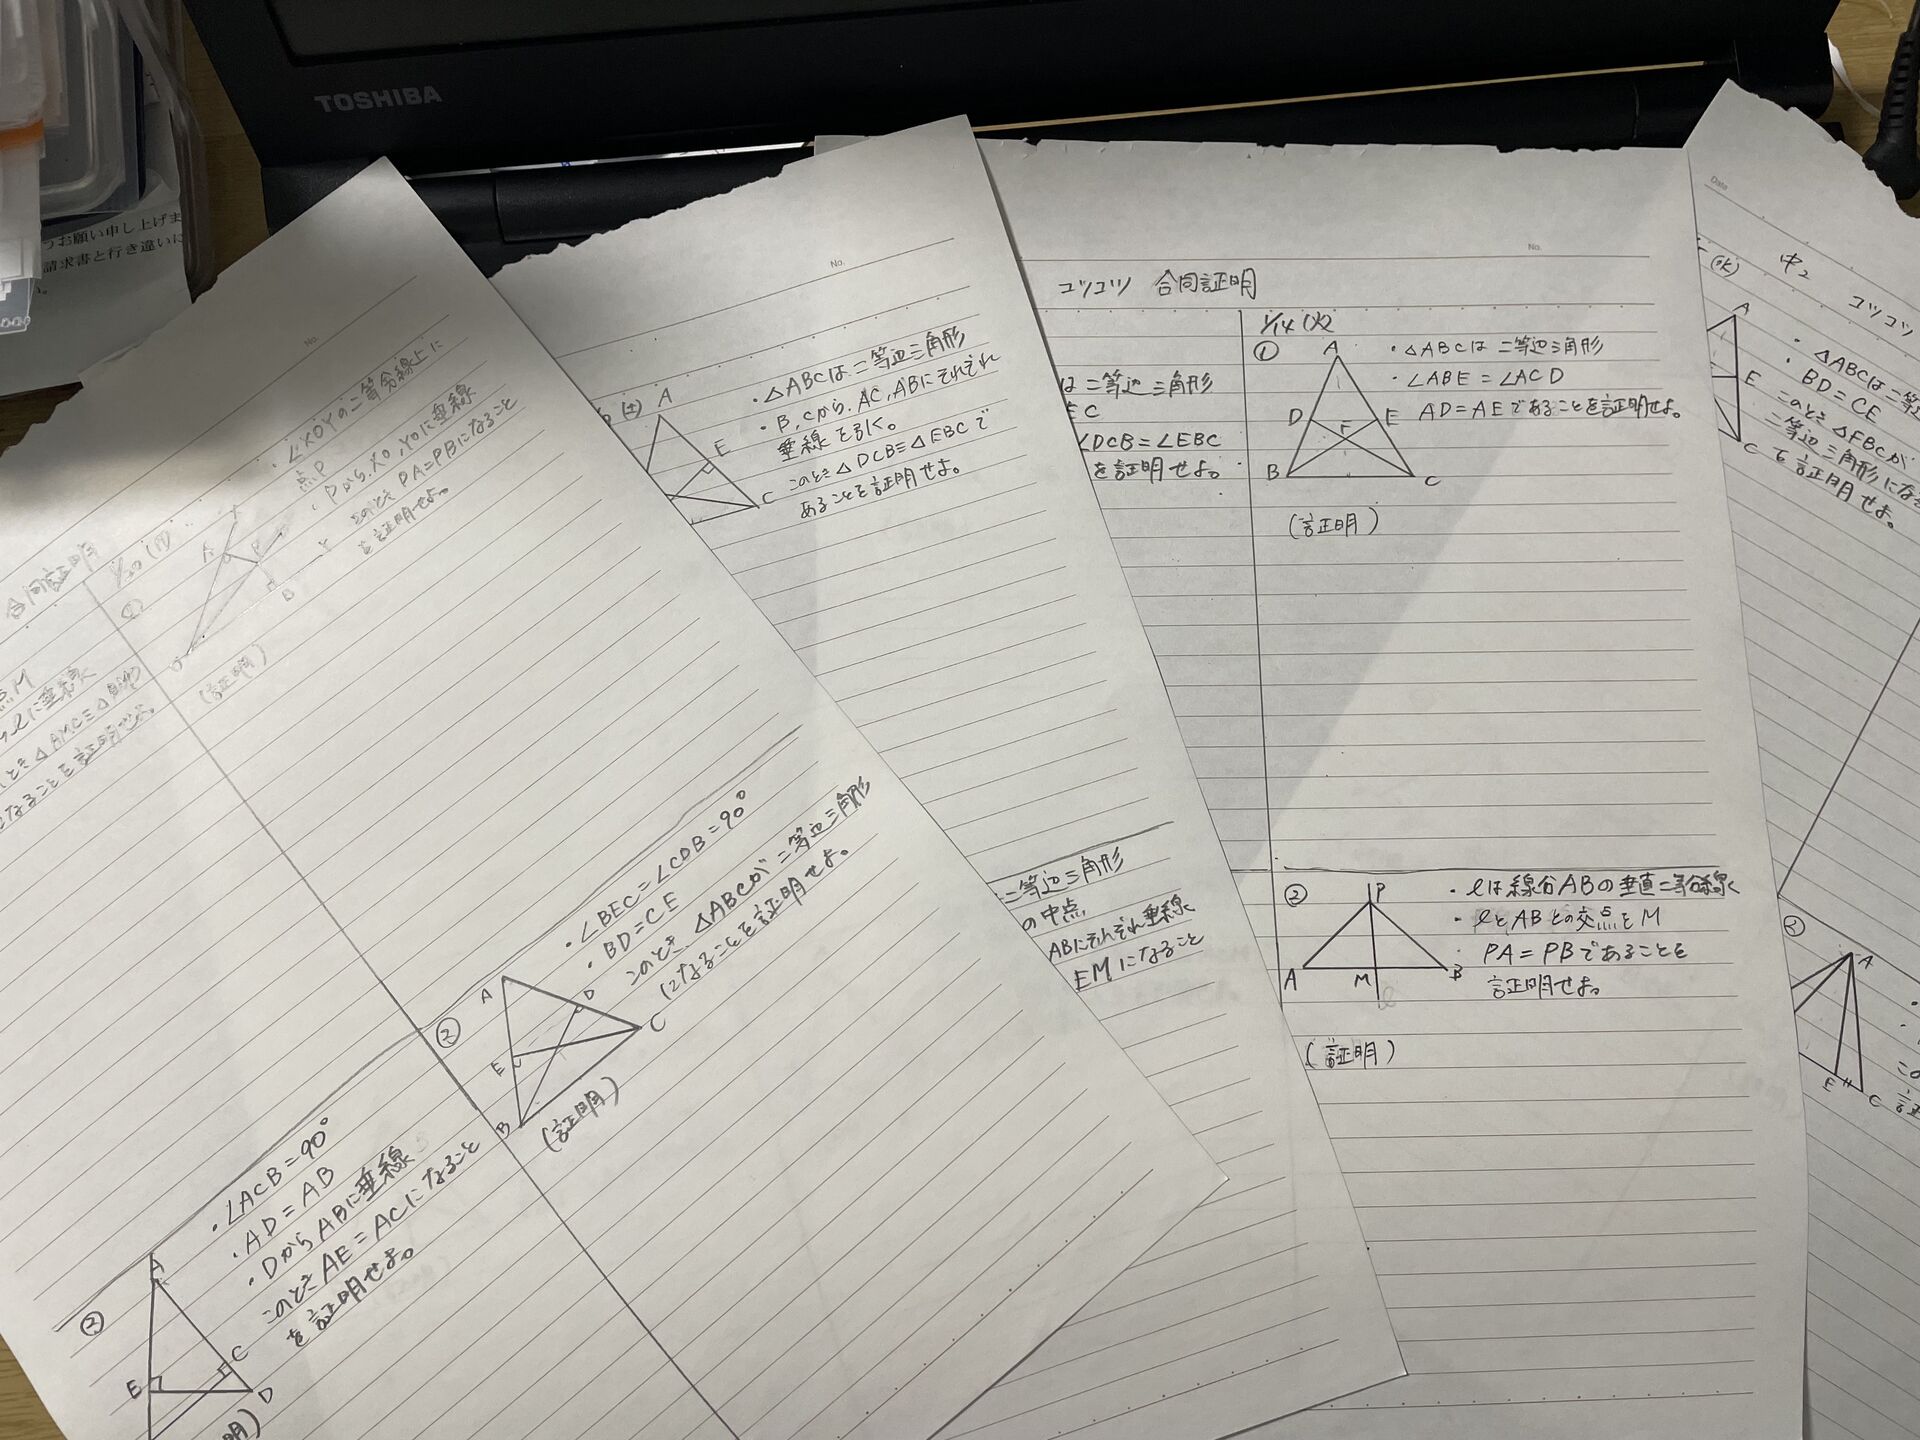 TOSHIBA
うお願い申し上げま
請求書と行き違いに
No.
合同証明
1/20
・∠XOYの二等分線上に
点P
・PからXO,YOに垂線
このとき PA=PBになること
を証明せよ。
X
A
P
Y
B
O
(証明)
点M
lに垂線
とき△AMC≡△
なることを証明せよ。
②
・∠BEC=∠CDB=90°
・BD=CE
このとき △ABCが二等辺三角形
になることを証明せよ。
A
D
E
C
B
(証明)
②
・∠ACB=90°
・AD=AB
・DからABに垂線
このとき AE=ACになること
を証明せよ。
A
E
C
D
明)
No.
(土)
A
E
C
・△ABCは二等辺三角形
・B,Cから,AC,ABにそれぞれ
垂線を引く。
このとき△DCB≡△EBCで
あることを証明せよ。
二等辺三角形
の中点
ABにそれぞれ垂線
EMになること
No.
コツコツ 合同証明
は二等辺三角形
EC
∠DCB=∠EBC
を証明せよ。
1/14 (火)
①
・△ABCは二等辺三角形
・∠ABE=∠ACD
AD=AEであることを証明せよ。
A
D
E
F
B
C
(証明)
②
・lは線分ABの垂直二等分線
・lとABとの交点をM
・PA=PBであることを
証明せよ。
P
A
M
B
l
(証明)
Date
(水)
中2 コツコツ
A
E
C
・△ABCは二等
・BD=CE
このとき△FBCが
二等辺三角形にな
を証明せよ。
②
A
E
C
この
証